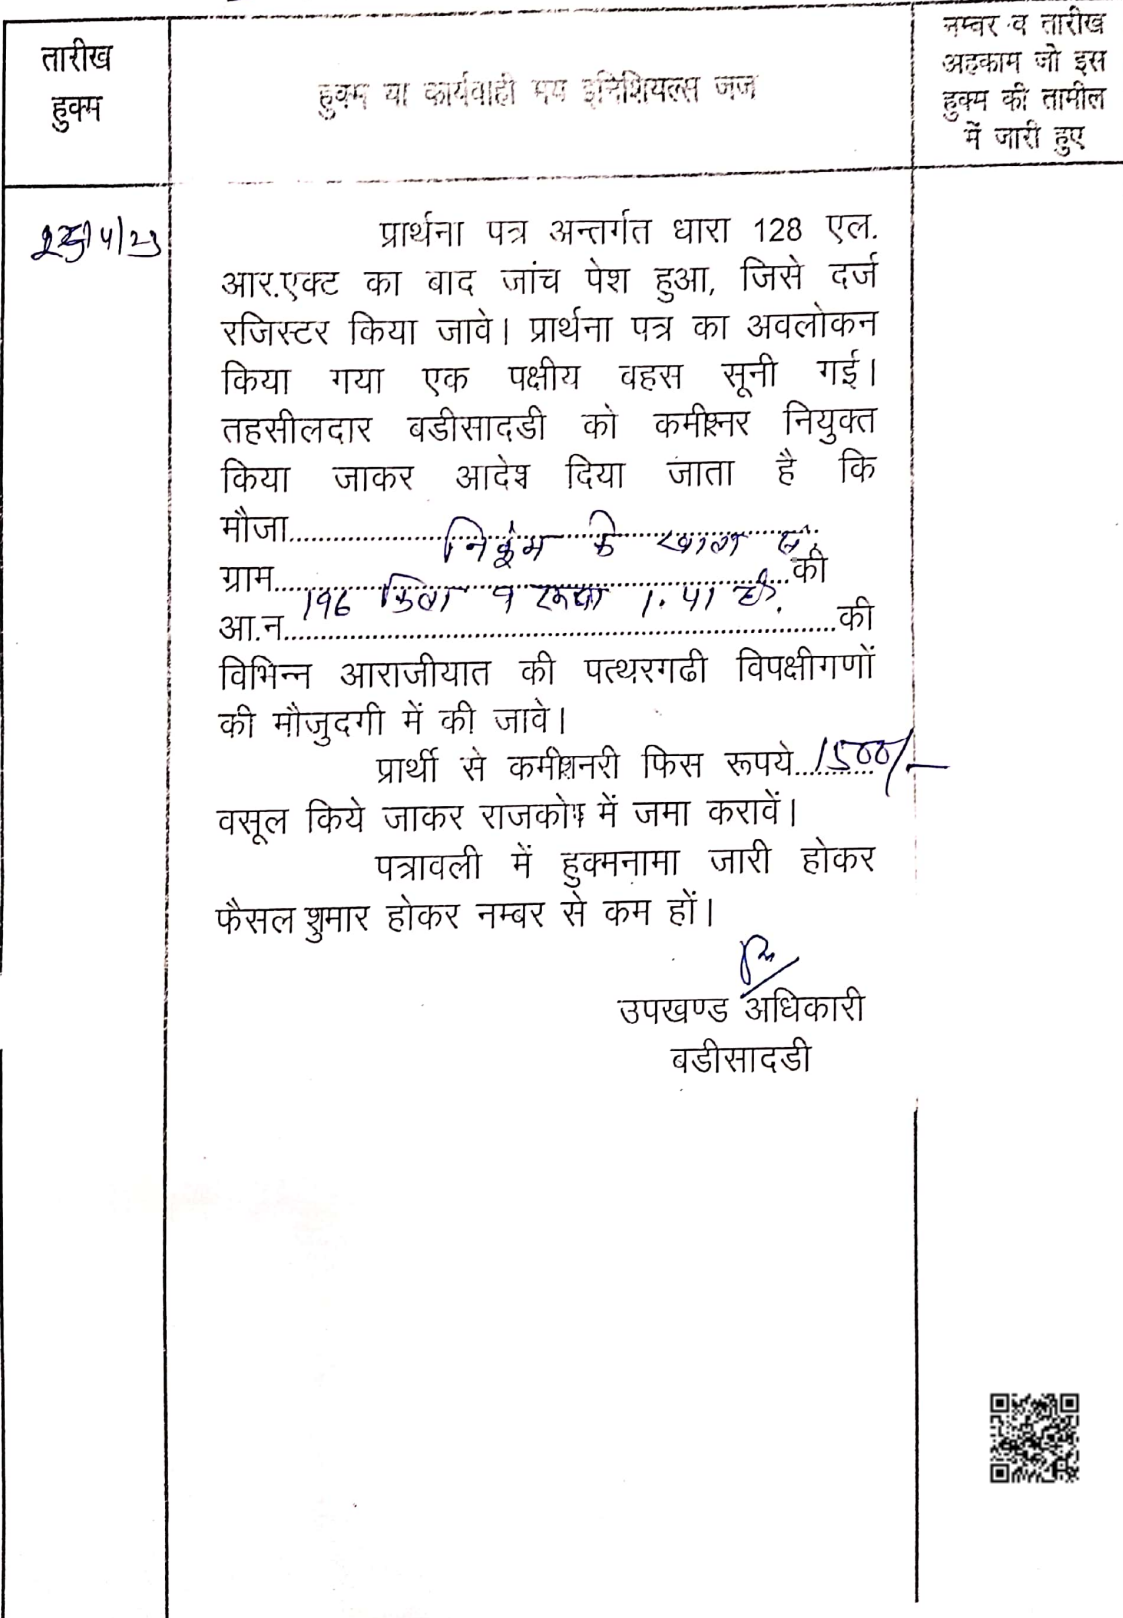 तारीख
हुक्म
हुक्म या कार्यवाही मय इनिशियल्स जज
नम्बर व तारीख
अहकाम जो इस
हुक्म की तामील
में जारी हुए
प्रार्थना पत्र अन्तर्गत धारा 128 एल.
आर.एक्ट का बाद जांच पेश हुआ, जिसे दर्ज
रजिस्टर किया जावे। प्रार्थना पत्र का अवलोकन
किया गया एक पक्षीय वहस सूनी गई।
तहसीलदार बडीसादडी को कमीश्नर नियुक्त
किया जाकर आदेश दिया जाता है कि
मौजा..........निकुंम के खाता सं.
ग्राम..........की
196 किता 9 रकबा 1.41 है.
आ.न..........की
विभिन्न आराजीयात की पत्थरगढी विपक्षीगणों
की मौजुदगी में की जावे।
प्रार्थी से कमीशनरी फिस रूपये..1500/-
वसूल किये जाकर राजकोष में जमा करावें।
पत्रावली में हुक्मनामा जारी होकर
फैसल शुमार होकर नम्बर से कम हों।
उपखण्ड अधिकारी
बडीसादडी